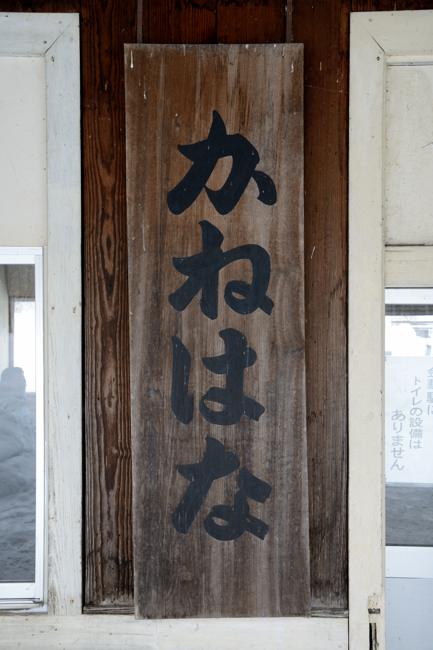 かねはな
トイレの設備は
ありません